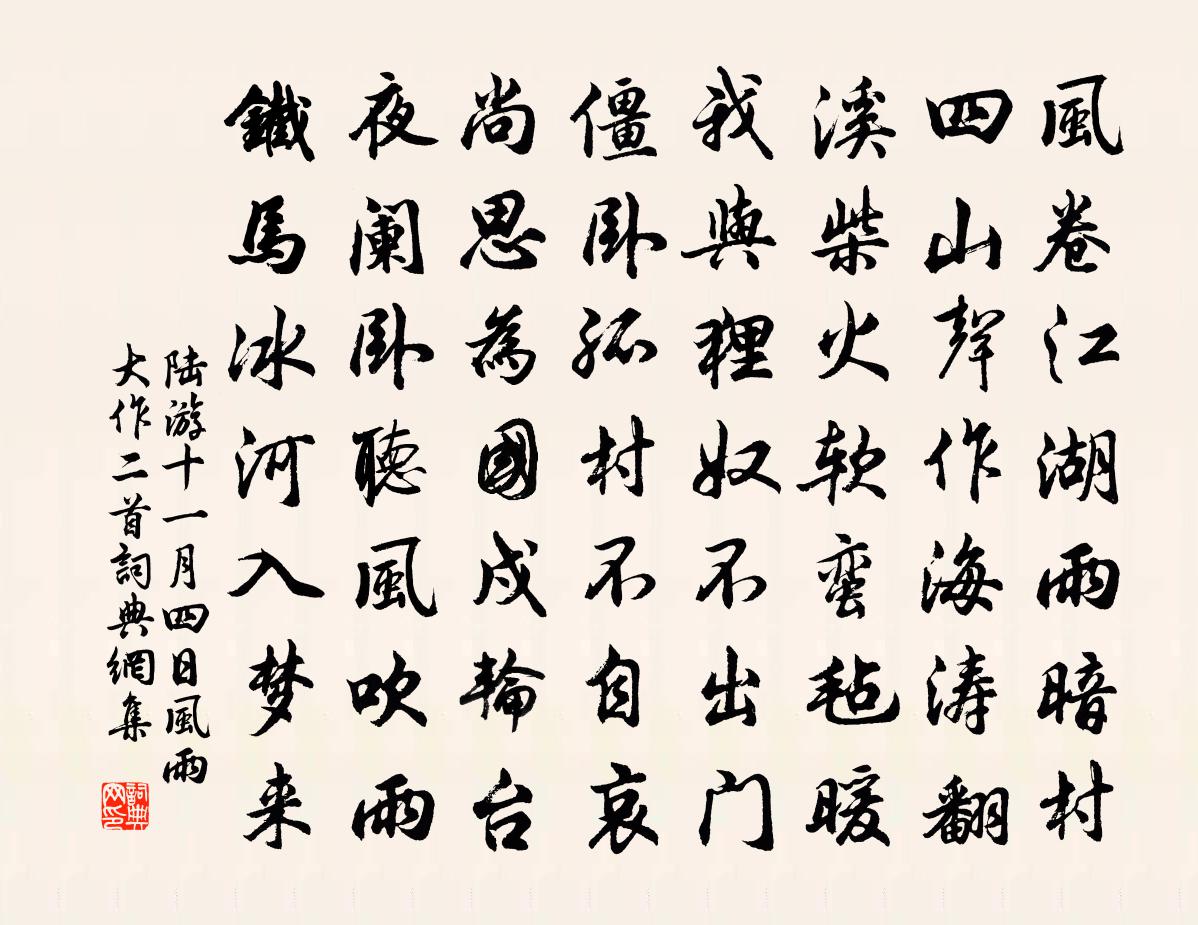 風卷江湖雨暗村
四山聲作海涛翻
溪柴火软蛮毡暖
我與狸奴不出门
僵卧孤村不自哀
尚思為國戍輪台
夜阑卧聽風吹雨
鐵馬冰河入梦来
陆游十一月四日風雨
大作二首詞典網集
詞典
网印